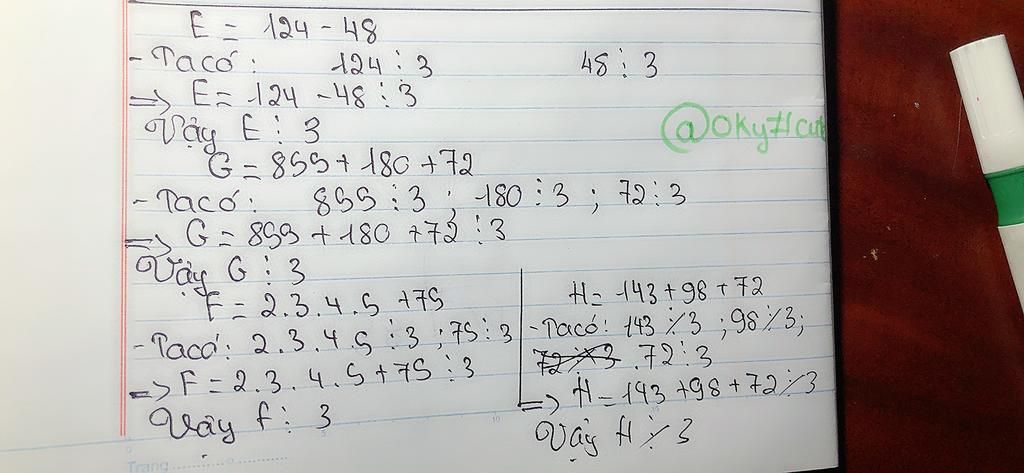 E = 124 - 48
- Ta có: 124 ⋮ 3 48 ⋮ 3
=> E = 124 - 48 ⋮ 3
Vậy E ⋮ 3
G = 855 + 180 + 72
- Ta có: 855 ⋮ 3 ; 180 ⋮ 3 ; 72 ⋮ 3
=> G = 855 + 180 + 72 ⋮ 3
Vậy G ⋮ 3
F = 2.3.4.5 + 75
- Ta có: 2.3.4.5 ⋮ 3 ; 75 ⋮ 3
=> F = 2.3.4.5 + 75 ⋮ 3
Vậy f ⋮ 3
H = 143 + 98 + 72
- Ta có: 143 ⋮̸ 3 ; 98 ⋮̸ 3 ;
72 ⋮̸ 3 . 72 ⋮ 3
=> H = 143 + 98 + 72 ⋮̸ 3
Vậy H ⋮̸ 3
Trang